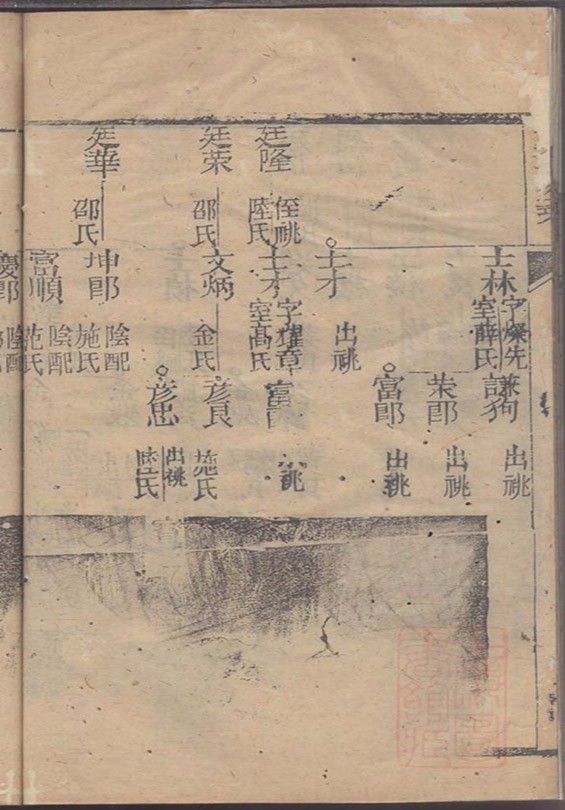 士林
字燦先
室薛氏
謙狗
出祧
荣郎
出祧
富郎
出祧
士才
出祧
廷隆
侄祧
陸氏
士才
字耀章
室高氏
富
祧
廷荣
邵氏
文炳
金氏
彦良
施氏
彦忠
出祧
陸氏
廷華
邵氏
坤郎
陰配
施氏
富順
陰配
范氏
慶郎
陰配